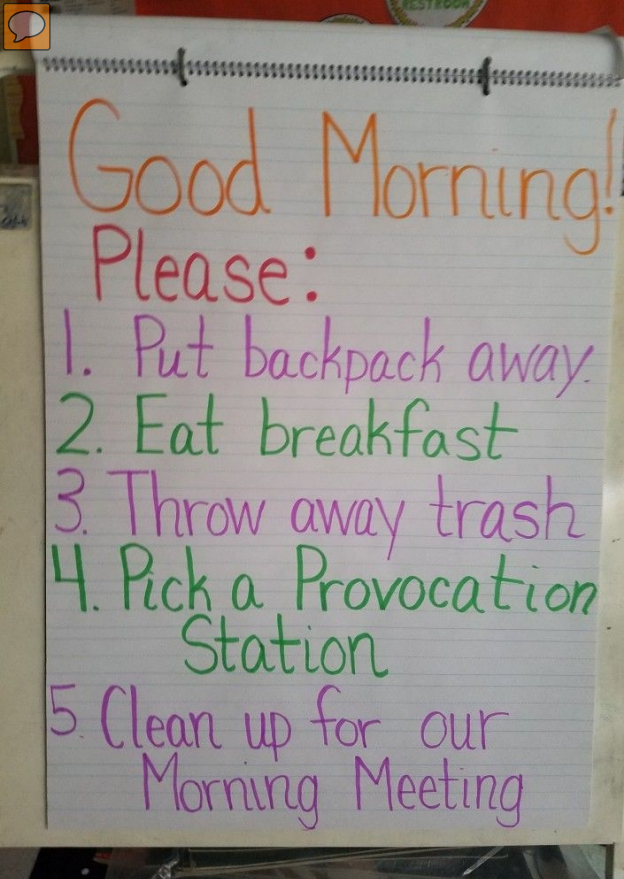 RESTROOM
Good Morning!
Please:
1. Put backpack away.
2. Eat breakfast
3. Throw away trash
4. Pick a Provocation
Station
5. Clean up for our
Morning Meeting